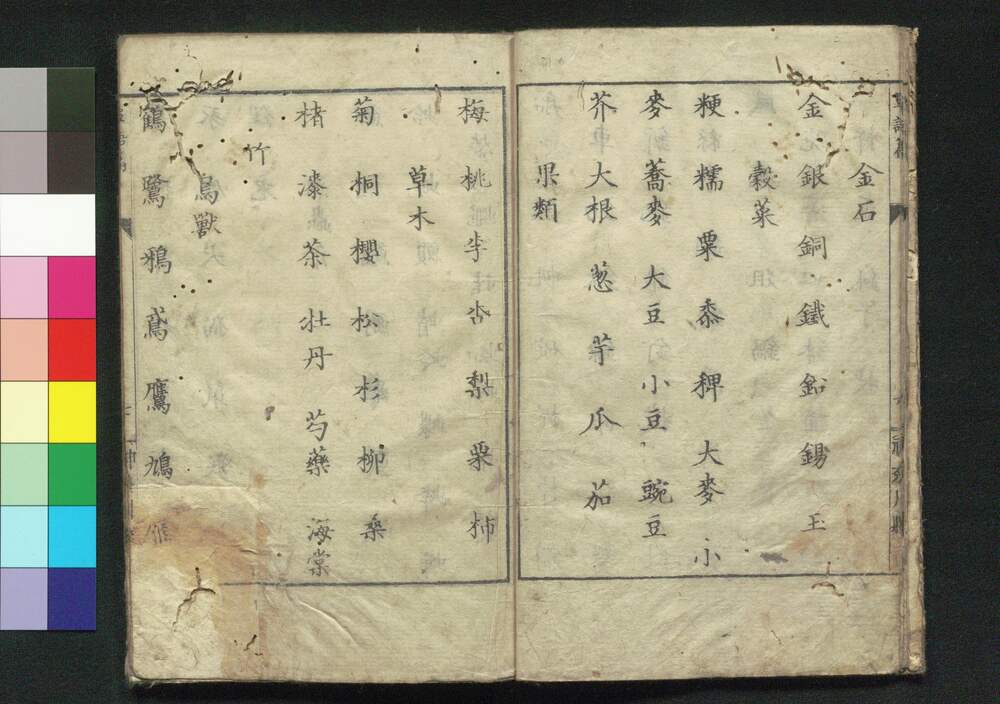 金石
金 銀 銅 鐵 鉛 錫 玉
穀菜
粳 糯 粟 黍 稗 大麥 小
麥 蕎麥 大豆 小豆 豌豆
芥 大根 葱 芋 瓜 茄
果類
梅 桃 李 杏 梨 栗 柿
草木
菊 桐 櫻 松 杉 柳 桑
楮 漆 茶 牡丹 芍藥 海棠
竹
鳥獸
鶴 鷺 鴉 鳶 鷹 鳩 雁